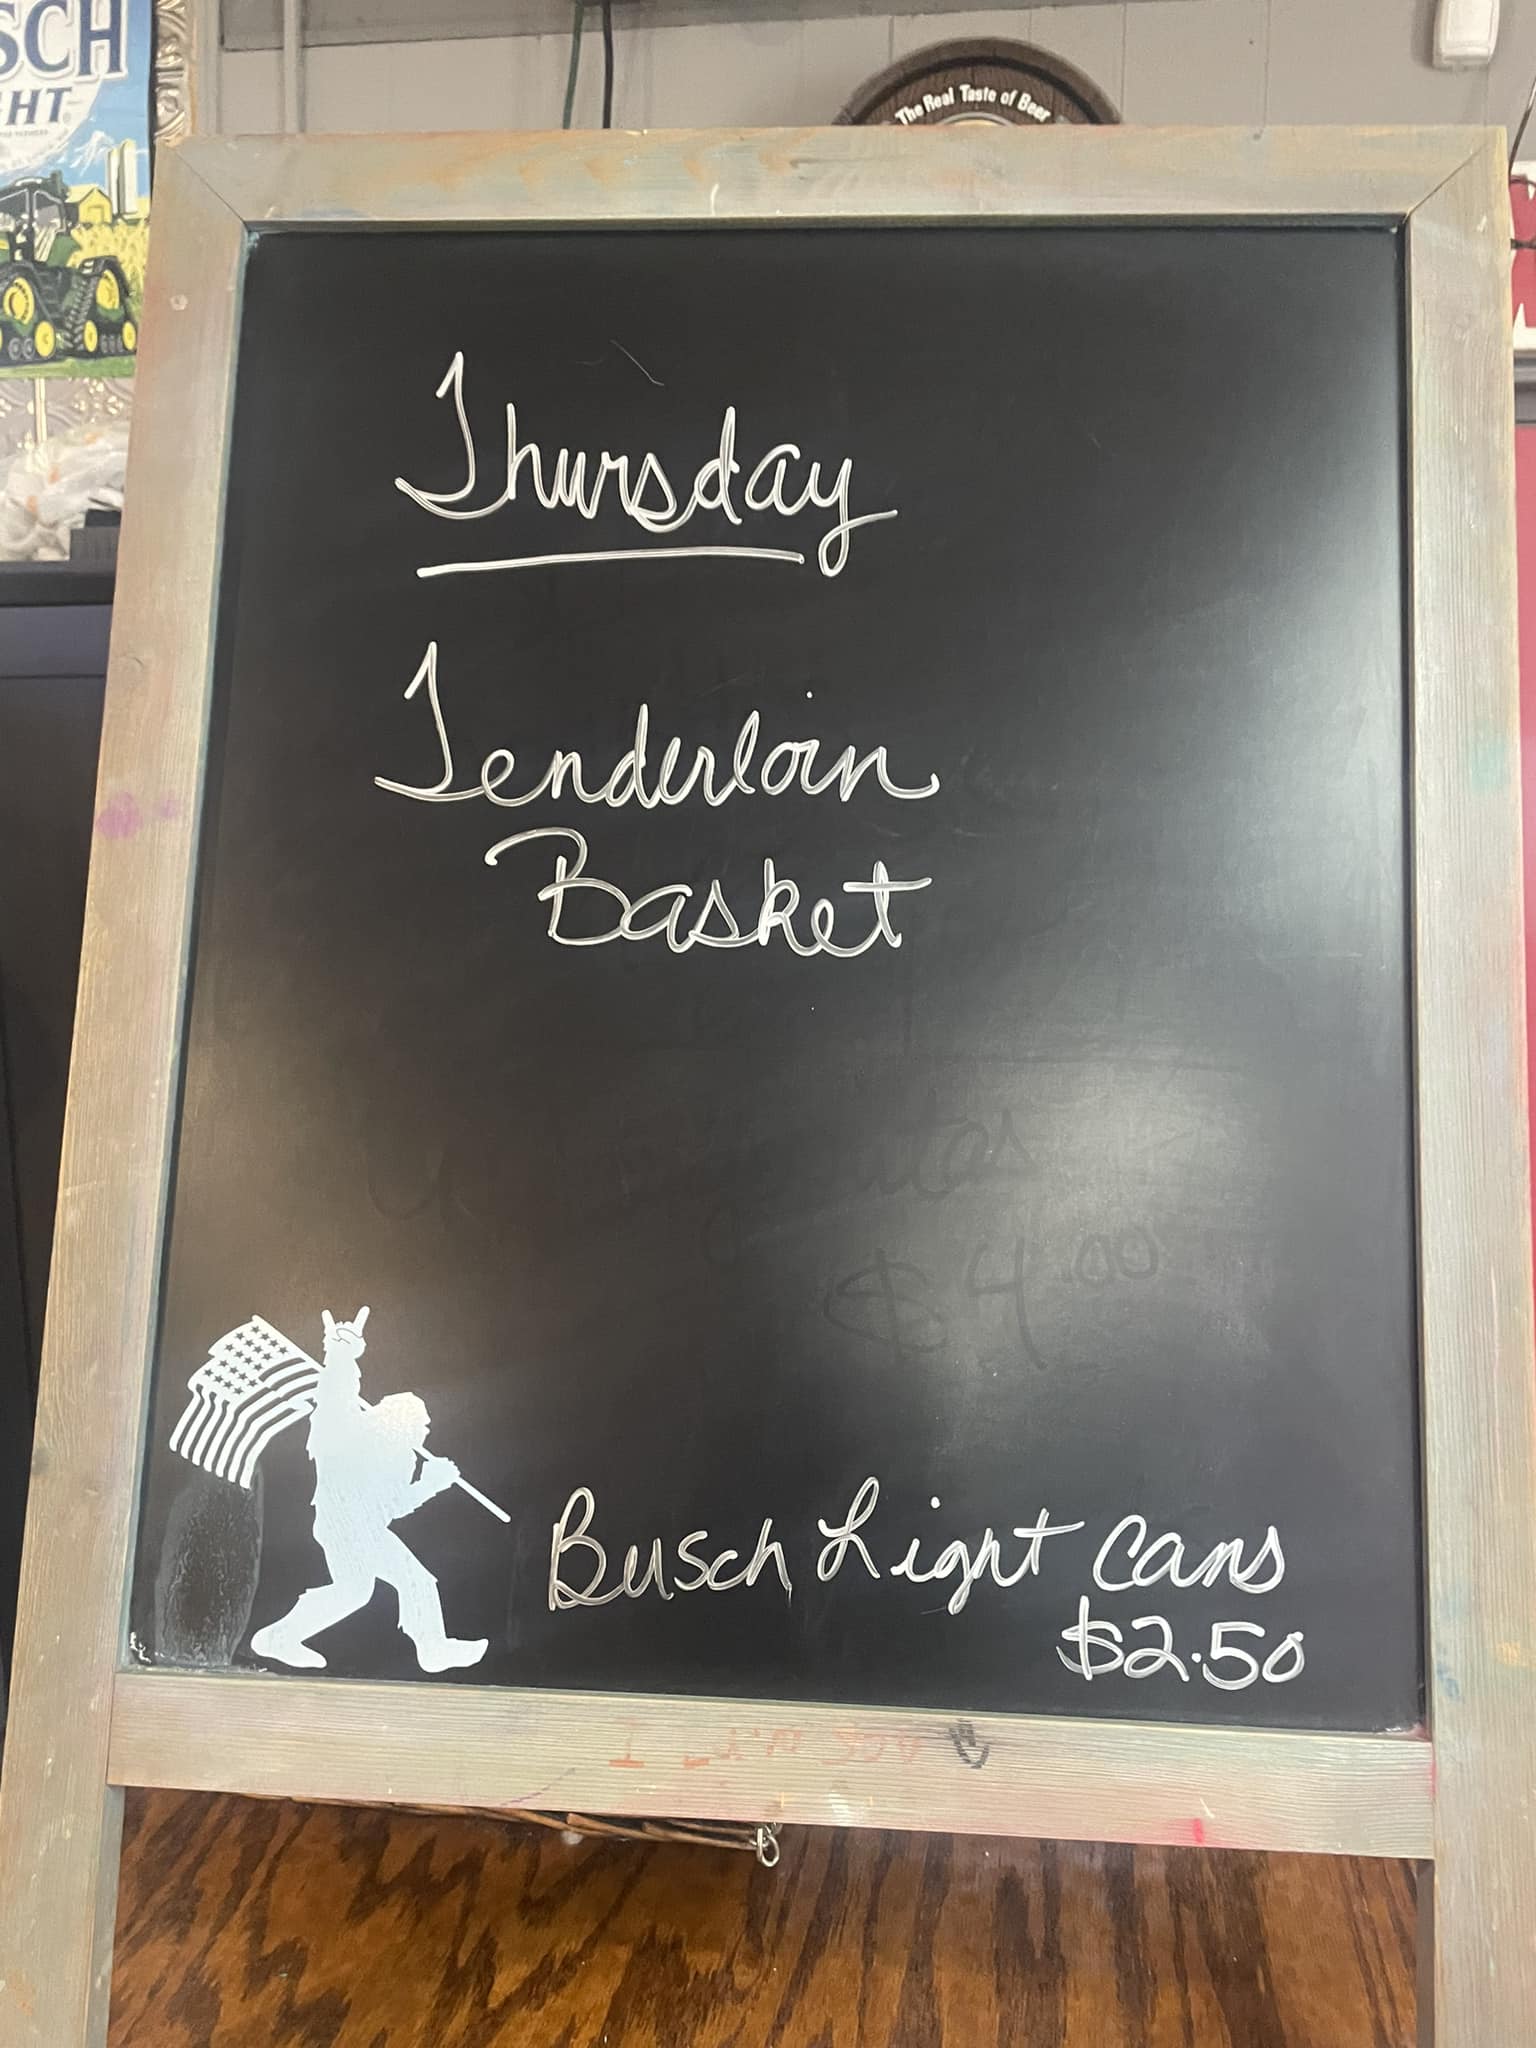 SCH
HT
The Real Taste of Beer
Thursday
Tenderloin
Basket
$4.00
Busch Light cans
$2.50